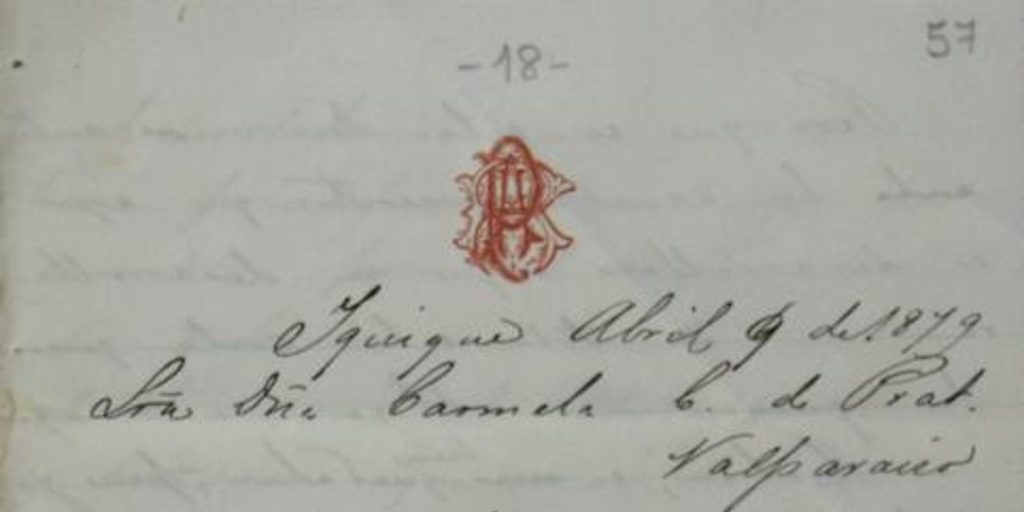 57
-18-
Iquique Abril 9 de 1879
Sra Dña Carmela C. de Prat.
Valparaiso